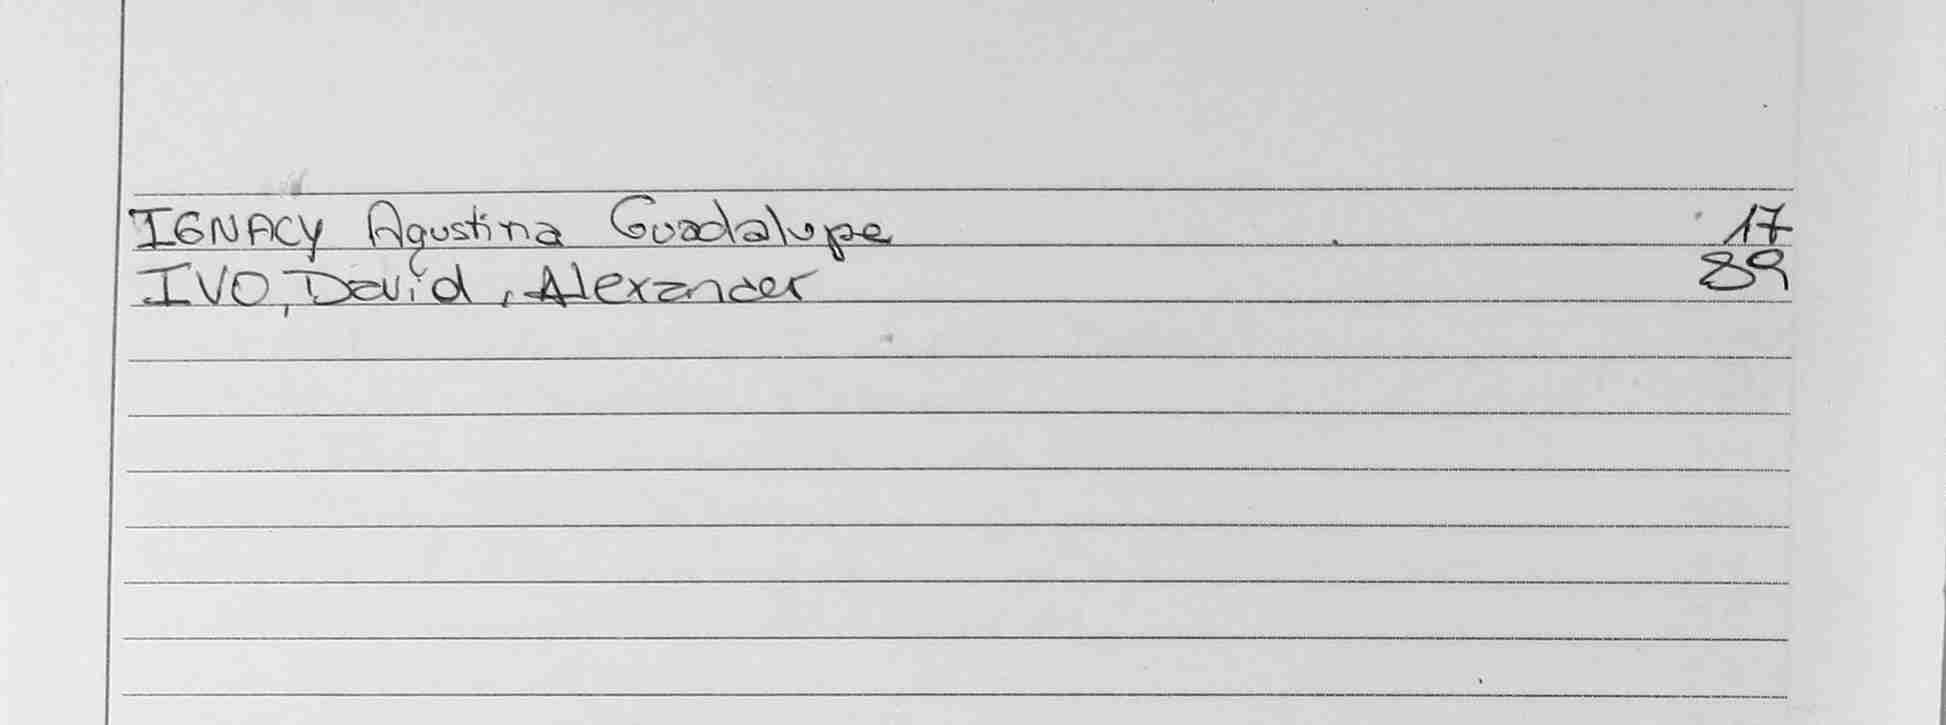 IGNACY Agustina Guadalupe 17
IVO, David, Alexander 89